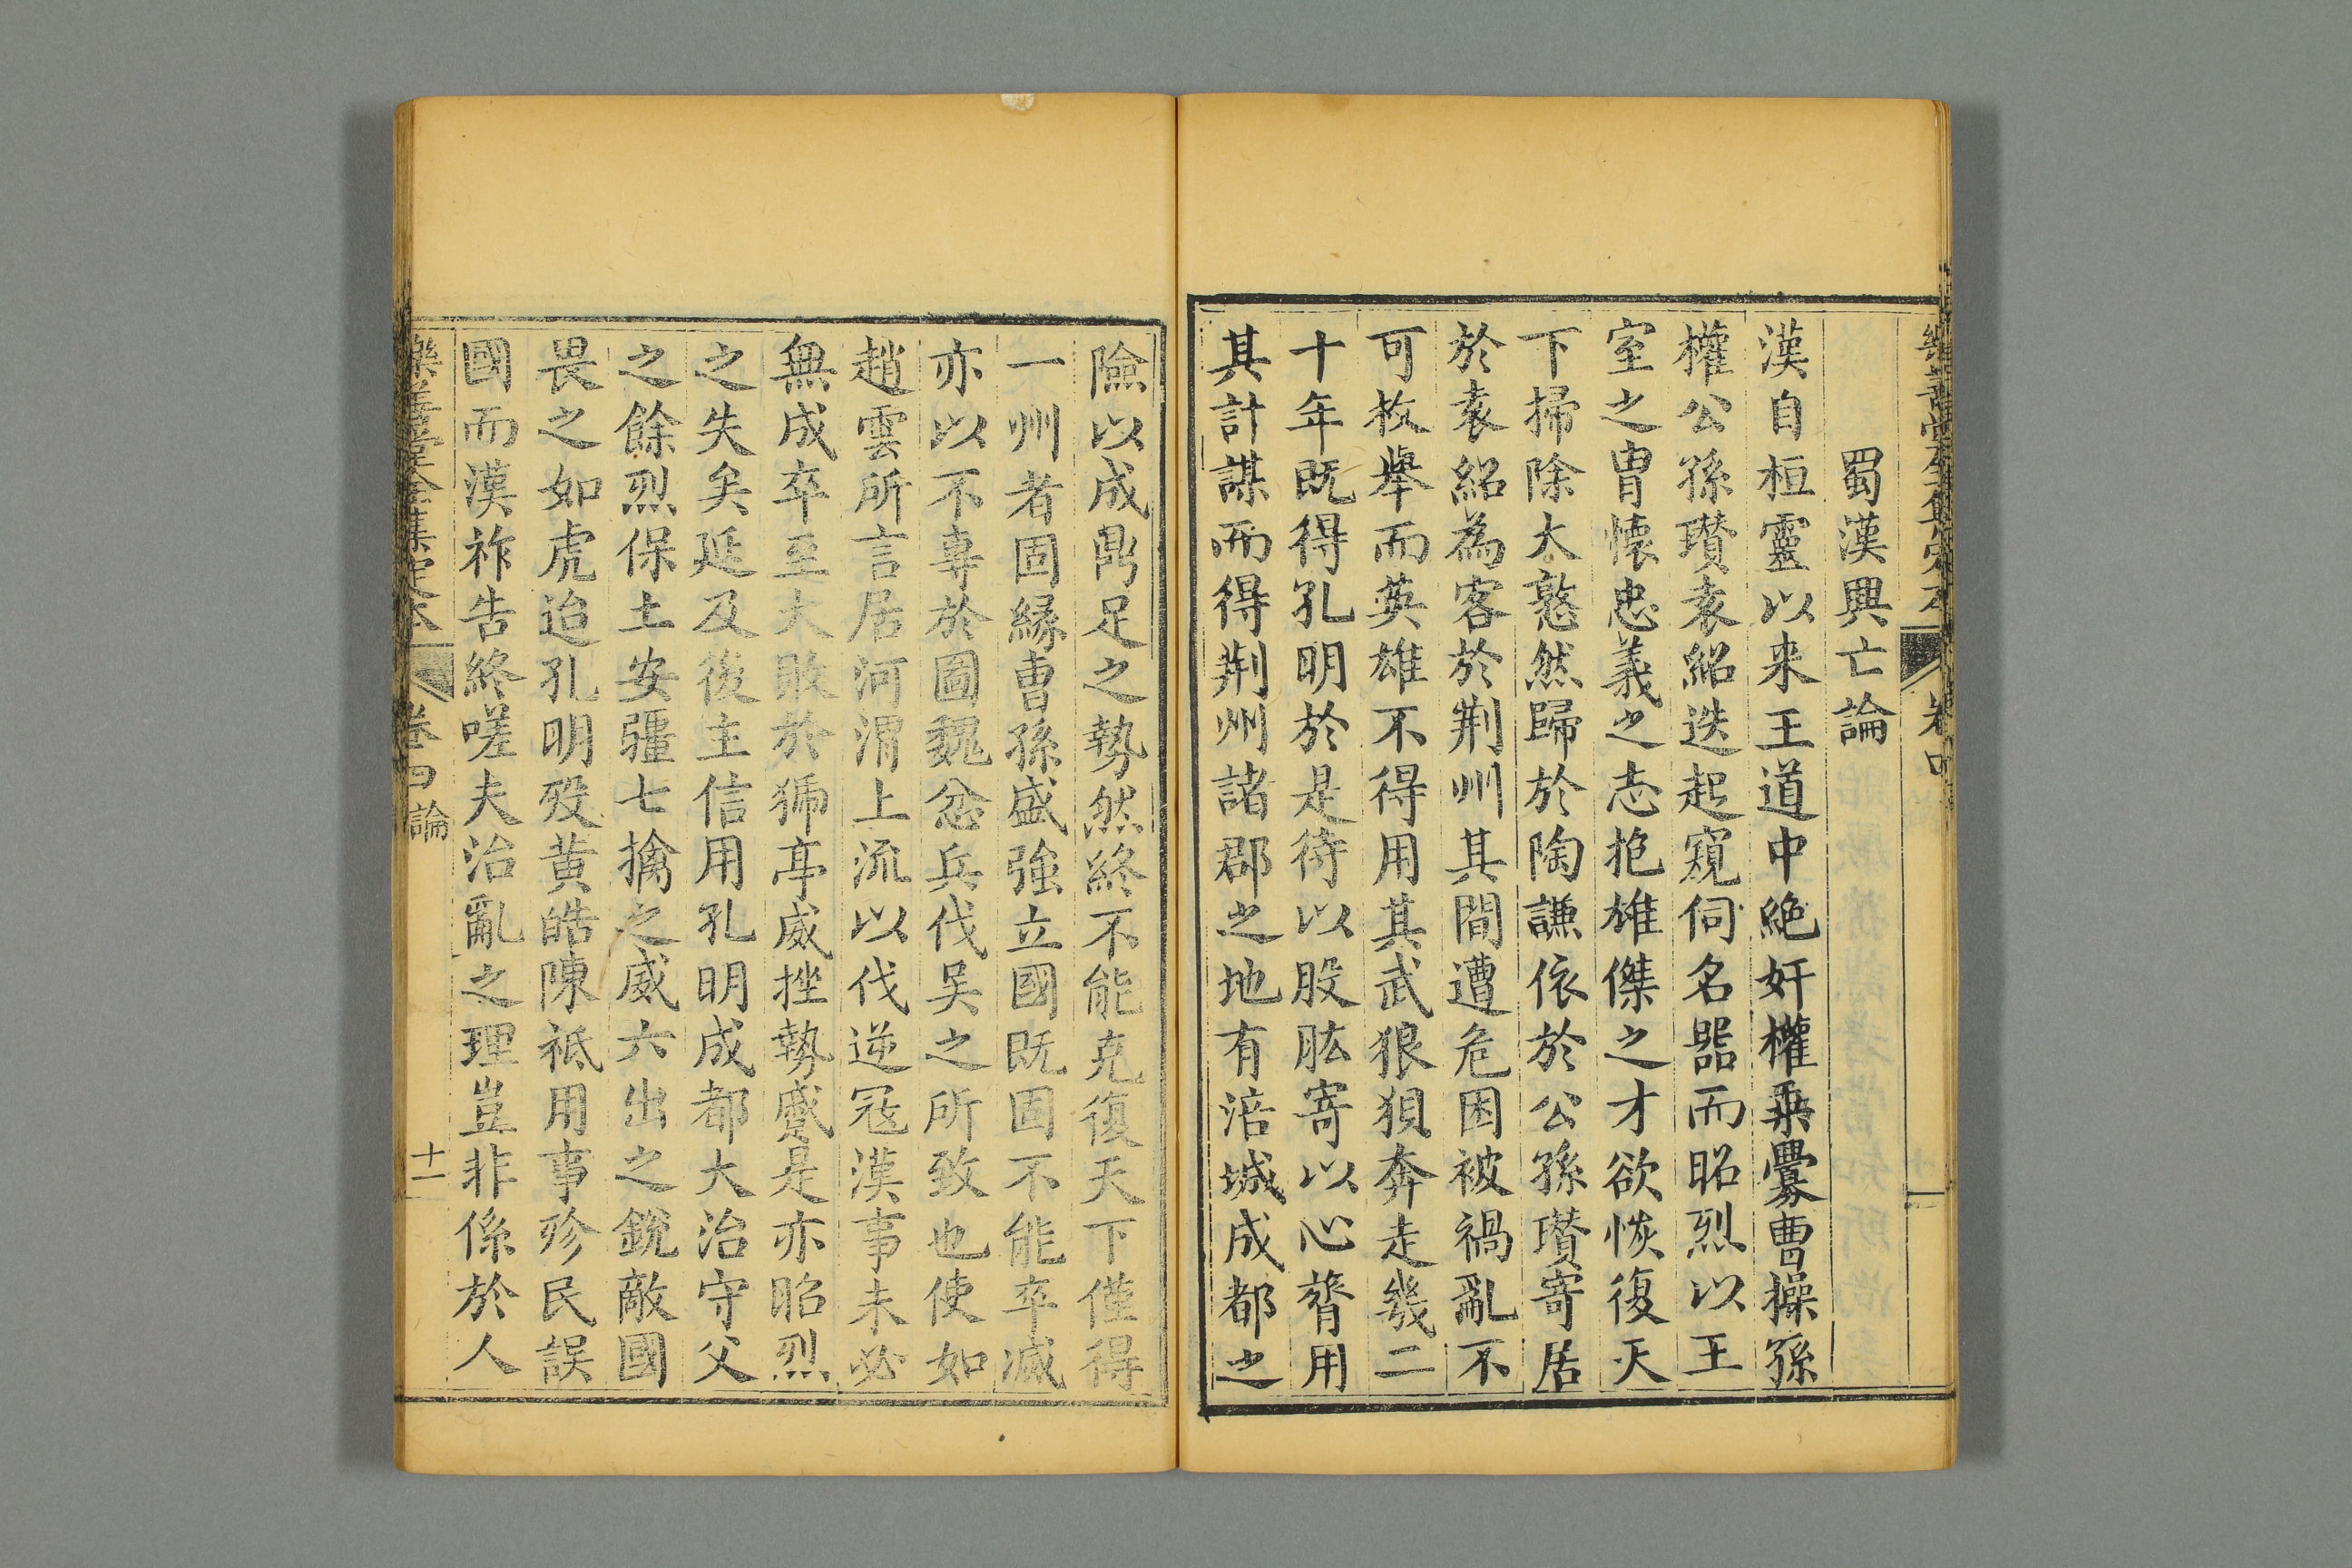 樂善堂全集定本 卷四
蜀漢興亡論
漢自桓靈以来王道中絶奸權乗釁曹操孫
權公孫瓚袁紹迭起窺伺名器而昭烈以王
室之冑懷忠義之志抱雄傑之才欲恢復天
下掃除大憝然歸於陶謙依於公孫瓚寄居
於袁紹為客於荆州其間遭危困被禍亂不
可枚舉而英雄不得用其武狼狽奔走幾二
十年既得孔明於是待以股肱寄以心膂用
其計謀而得荆州諸郡之地有涪城成都之
險以成鼎足之勢然終不能克復天下僅得
一州者固縁曹孫盛強立國既固不能卒滅
亦以不専於圖魏忿兵伐吴之所致也使如
趙雲所言居河渭上流以伐逆冦漢事未必
無成卒至大敗於猇亭威挫勢蹙是亦昭烈
之失矣延及後主信用孔明成都大治守父
之餘烈保土安疆七擒之威六出之銳敵國
畏之如虎迨孔明殁黄皓陳祗用事殄民誤
國而漢祚告終嗟夫治亂之理豈非係於人
樂善堂全集定本 卷四論 十一